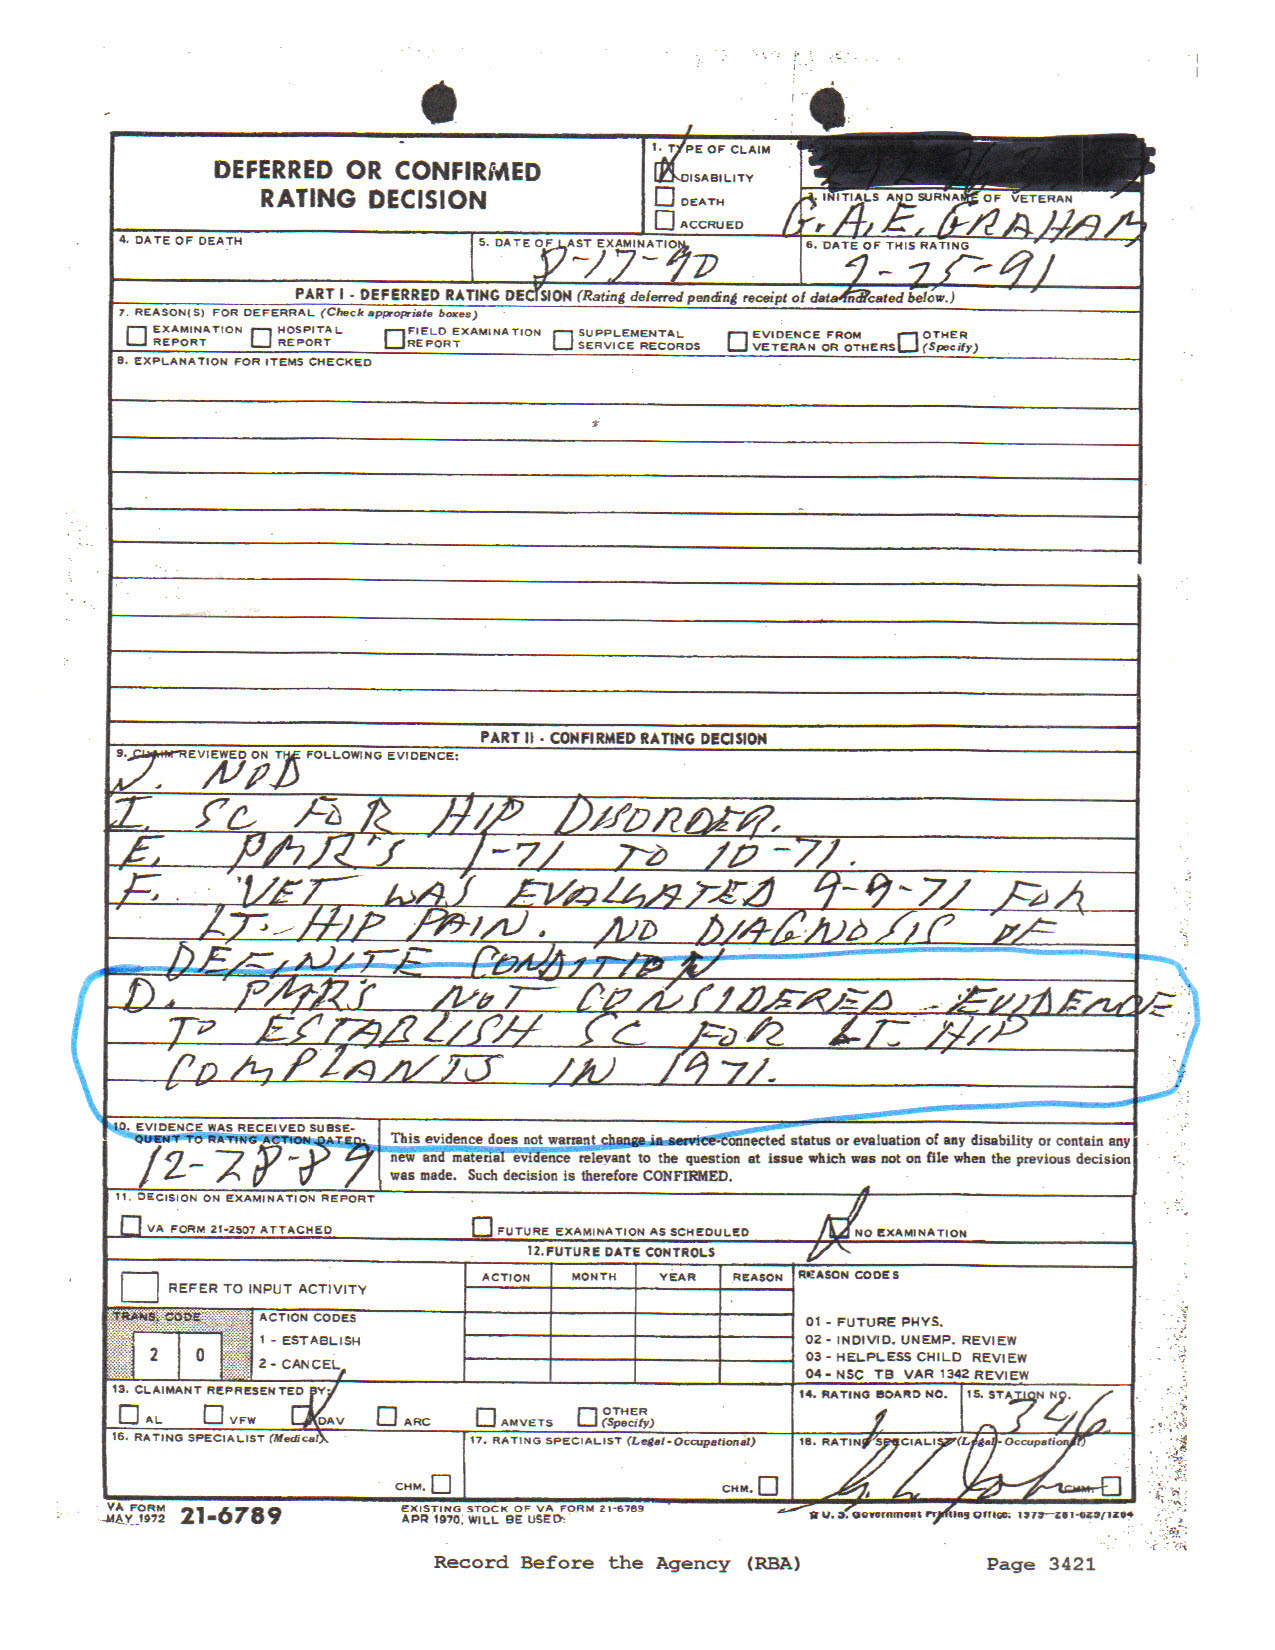 DEFERRED OR CONFIRMED
RATING DECISION
1. TYPE OF CLAIM
DISABILITY
DEATH
ACCRUED
3. INITIALS AND SURNAME OF VETERAN
G.A.E. GRAHAM
4. DATE OF DEATH
5. DATE OF LAST EXAMINATION
8-17-90
6. DATE OF THIS RATING
2-25-91
PART I - DEFERRED RATING DECISION (Rating deferred pending receipt of data indicated below.)
7. REASON(S) FOR DEFERRAL (Check appropriate boxes)
EXAMINATION REPORT
HOSPITAL REPORT
FIELD EXAMINATION REPORT
SUPPLEMENTAL SERVICE RECORDS
EVIDENCE FROM VETERAN OR OTHERS
OTHER (Specify)
8. EXPLANATION FOR ITEMS CHECKED
PART II - CONFIRMED RATING DECISION
9. CLAIM REVIEWED ON THE FOLLOWING EVIDENCE:
J. NOD
I. SC FOR HIP DISORDER.
E. PMR'S 1-71 TO 10-71.
F. VET WAS EVALUATED 9-9-71 FOR
LT. HIP PAIN. NO DIAGNOSIS OF
DEFINITE CONDITION
D. PMR'S NOT CONSIDERED EVIDENCE
TO ESTABLISH SC FOR LT. HIP
COMPLANTS IN 1971.
10. EVIDENCE WAS RECEIVED SUBSE-
QUENT TO RATING ACTION DATED:
12-28-89
This evidence does not warrant change in service-connected status or evaluation of any disability or contain any
new and material evidence relevant to the question at issue which was not on file when the previous decision
was made. Such decision is therefore CONFIRMED.
11. DECISION ON EXAMINATION REPORT
VA FORM 21-2507 ATTACHED
FUTURE EXAMINATION AS SCHEDULED
NO EXAMINATION
12. FUTURE DATE CONTROLS
REFER TO INPUT ACTIVITY
ACTION MONTH YEAR REASON
REASON CODES
TRANS. CODE
2 0
ACTION CODES
1 - ESTABLISH
2 - CANCEL
01 - FUTURE PHYS.
02 - INDIVID. UNEMP. REVIEW
03 - HELPLESS CHILD REVIEW
04 - NSC TB VAR 1342 REVIEW
13. CLAIMANT REPRESENTED BY:
AL VFW DAV ARC AMVETS OTHER (Specify)
14. RATING BOARD NO.
1
15. STATION NO.
346
16. RATING SPECIALIST (Medical)
CHM.
17. RATING SPECIALIST (Legal-Occupational)
CHM.
18. RATING SPECIALIST (Legal-Occupational)
CHM.
VA FORM
MAY 1972 21-6789
EXISTING STOCK OF VA FORM 21-6789
APR 1970, WILL BE USED.
☆ U.S. Government Printing Office:
Record Before the Agency (RBA) Page 3421